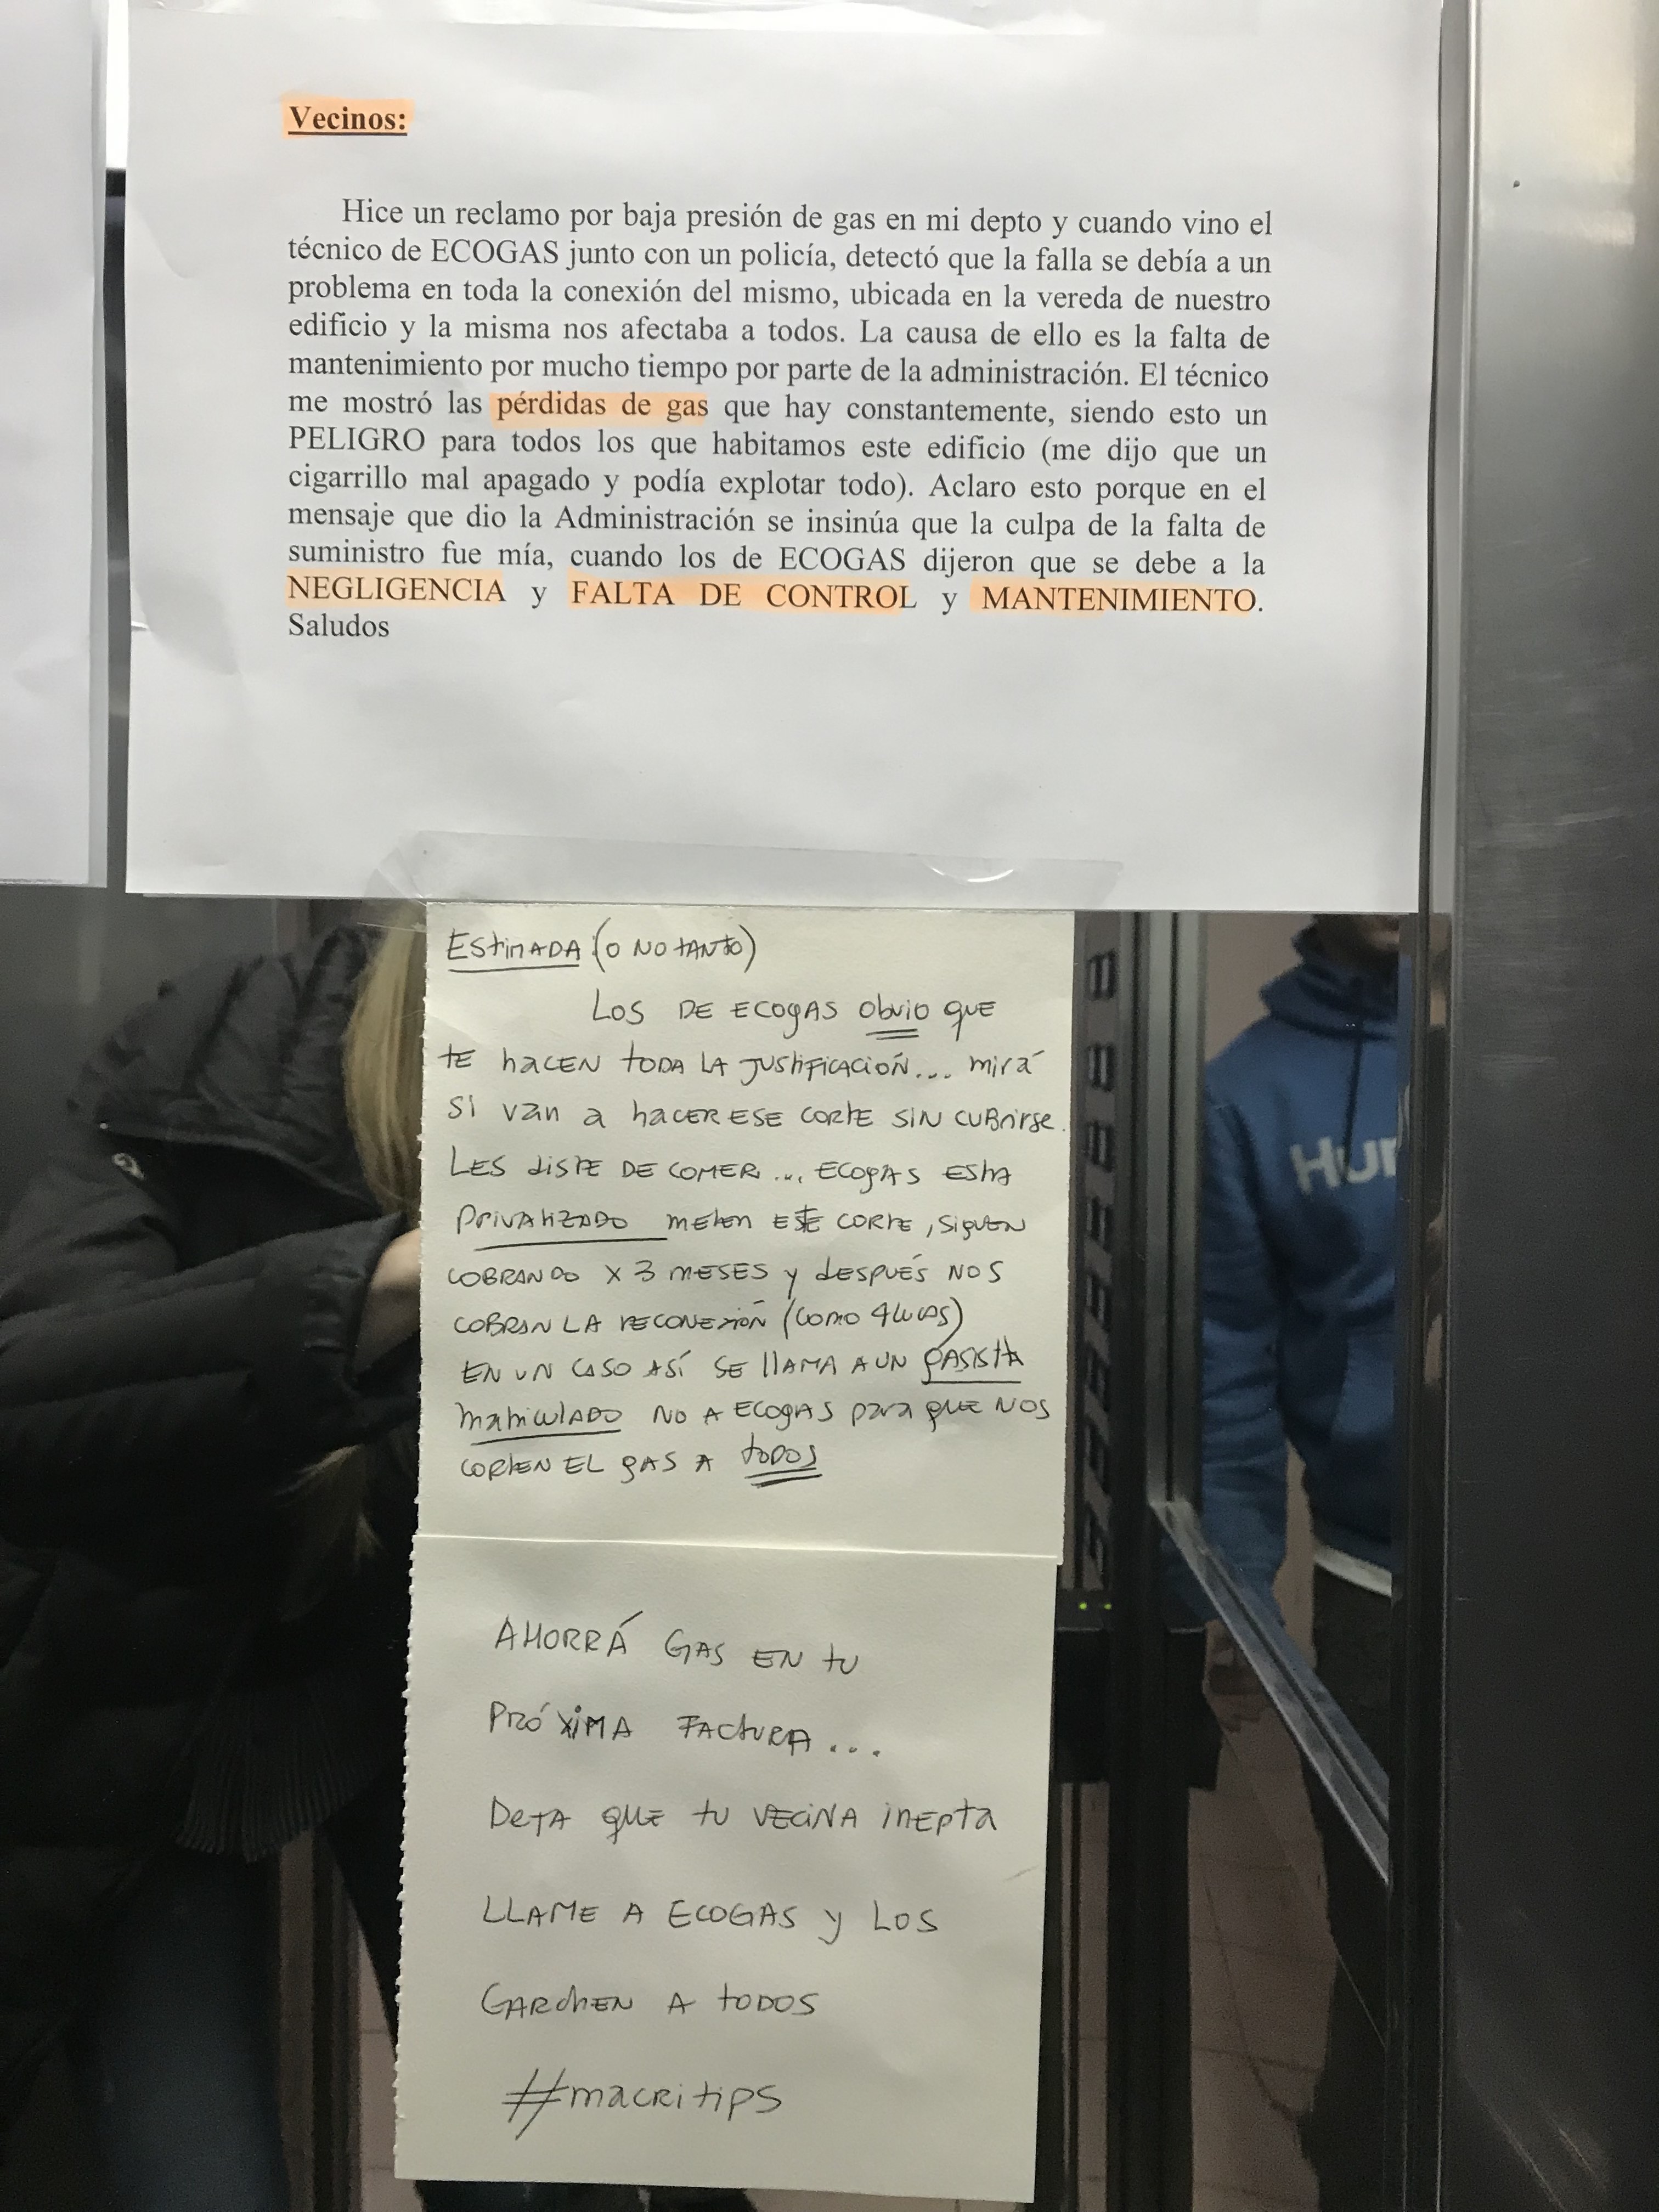 Vecinos:
Hice un reclamo por baja presión de gas en mi depto y cuando vino el
técnico de ECOGAS junto con un policía, detectó que la falla se debía a un
problema en toda la conexión del mismo, ubicada en la vereda de nuestro
edificio y la misma nos afectaba a todos. La causa de ello es la falta de
mantenimiento por mucho tiempo por parte de la administración. El técnico
me mostró las pérdidas de gas que hay constantemente, siendo esto un
PELIGRO para todos los que habitamos este edificio (me dijo que un
cigarrillo mal apagado y podía explotar todo). Aclaro esto porque en el
mensaje que dio la Administración se insinúa que la culpa de la falta de
suministro fue mía, cuando los de ECOGAS dijeron que se debe a la
NEGLIGENCIA y FALTA DE CONTROL y MANTENIMIENTO.
Saludos
EStimADA (o NO tANto)
LOS DE ECOgAS Obvio que
tE hACEN toDA LA JUStiFICACIóN... mirá
SI van a hACER ESE CORtE SIN CUBrirse.
LES diStE DE COMER... ECOgAS EStA
PrivAtizADO meten EStE CORtE, SigUEN
COBRANDO X 3 MESES y dESPUÉS NOS
COBRAN LA rECONEXIóN (COMO 4 LUCAS)
EN UN CASO ASÍ SE llAMA A UN gASIStA
MAtriCulADO NO A ECOgAS para quE NOS
CORtEN EL gAS A tODOS
AHORRÁ GAS EN tU
PRÓXiMA FACtURA...
DEJA quE tU VECiNA inEPta
LLAME A ECOGAS y LOS
GARChEN A tODOS
#macritips
Hur